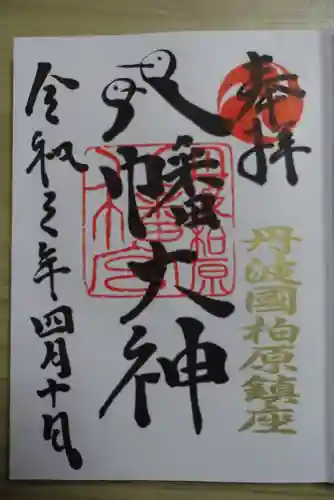 奉拝
丹波國柏原鎮座
八幡大神
令和三年四月十日